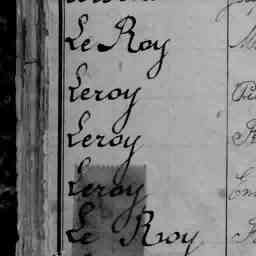 Le Roy
Leroy
Leroy
Leroy
Le Roy